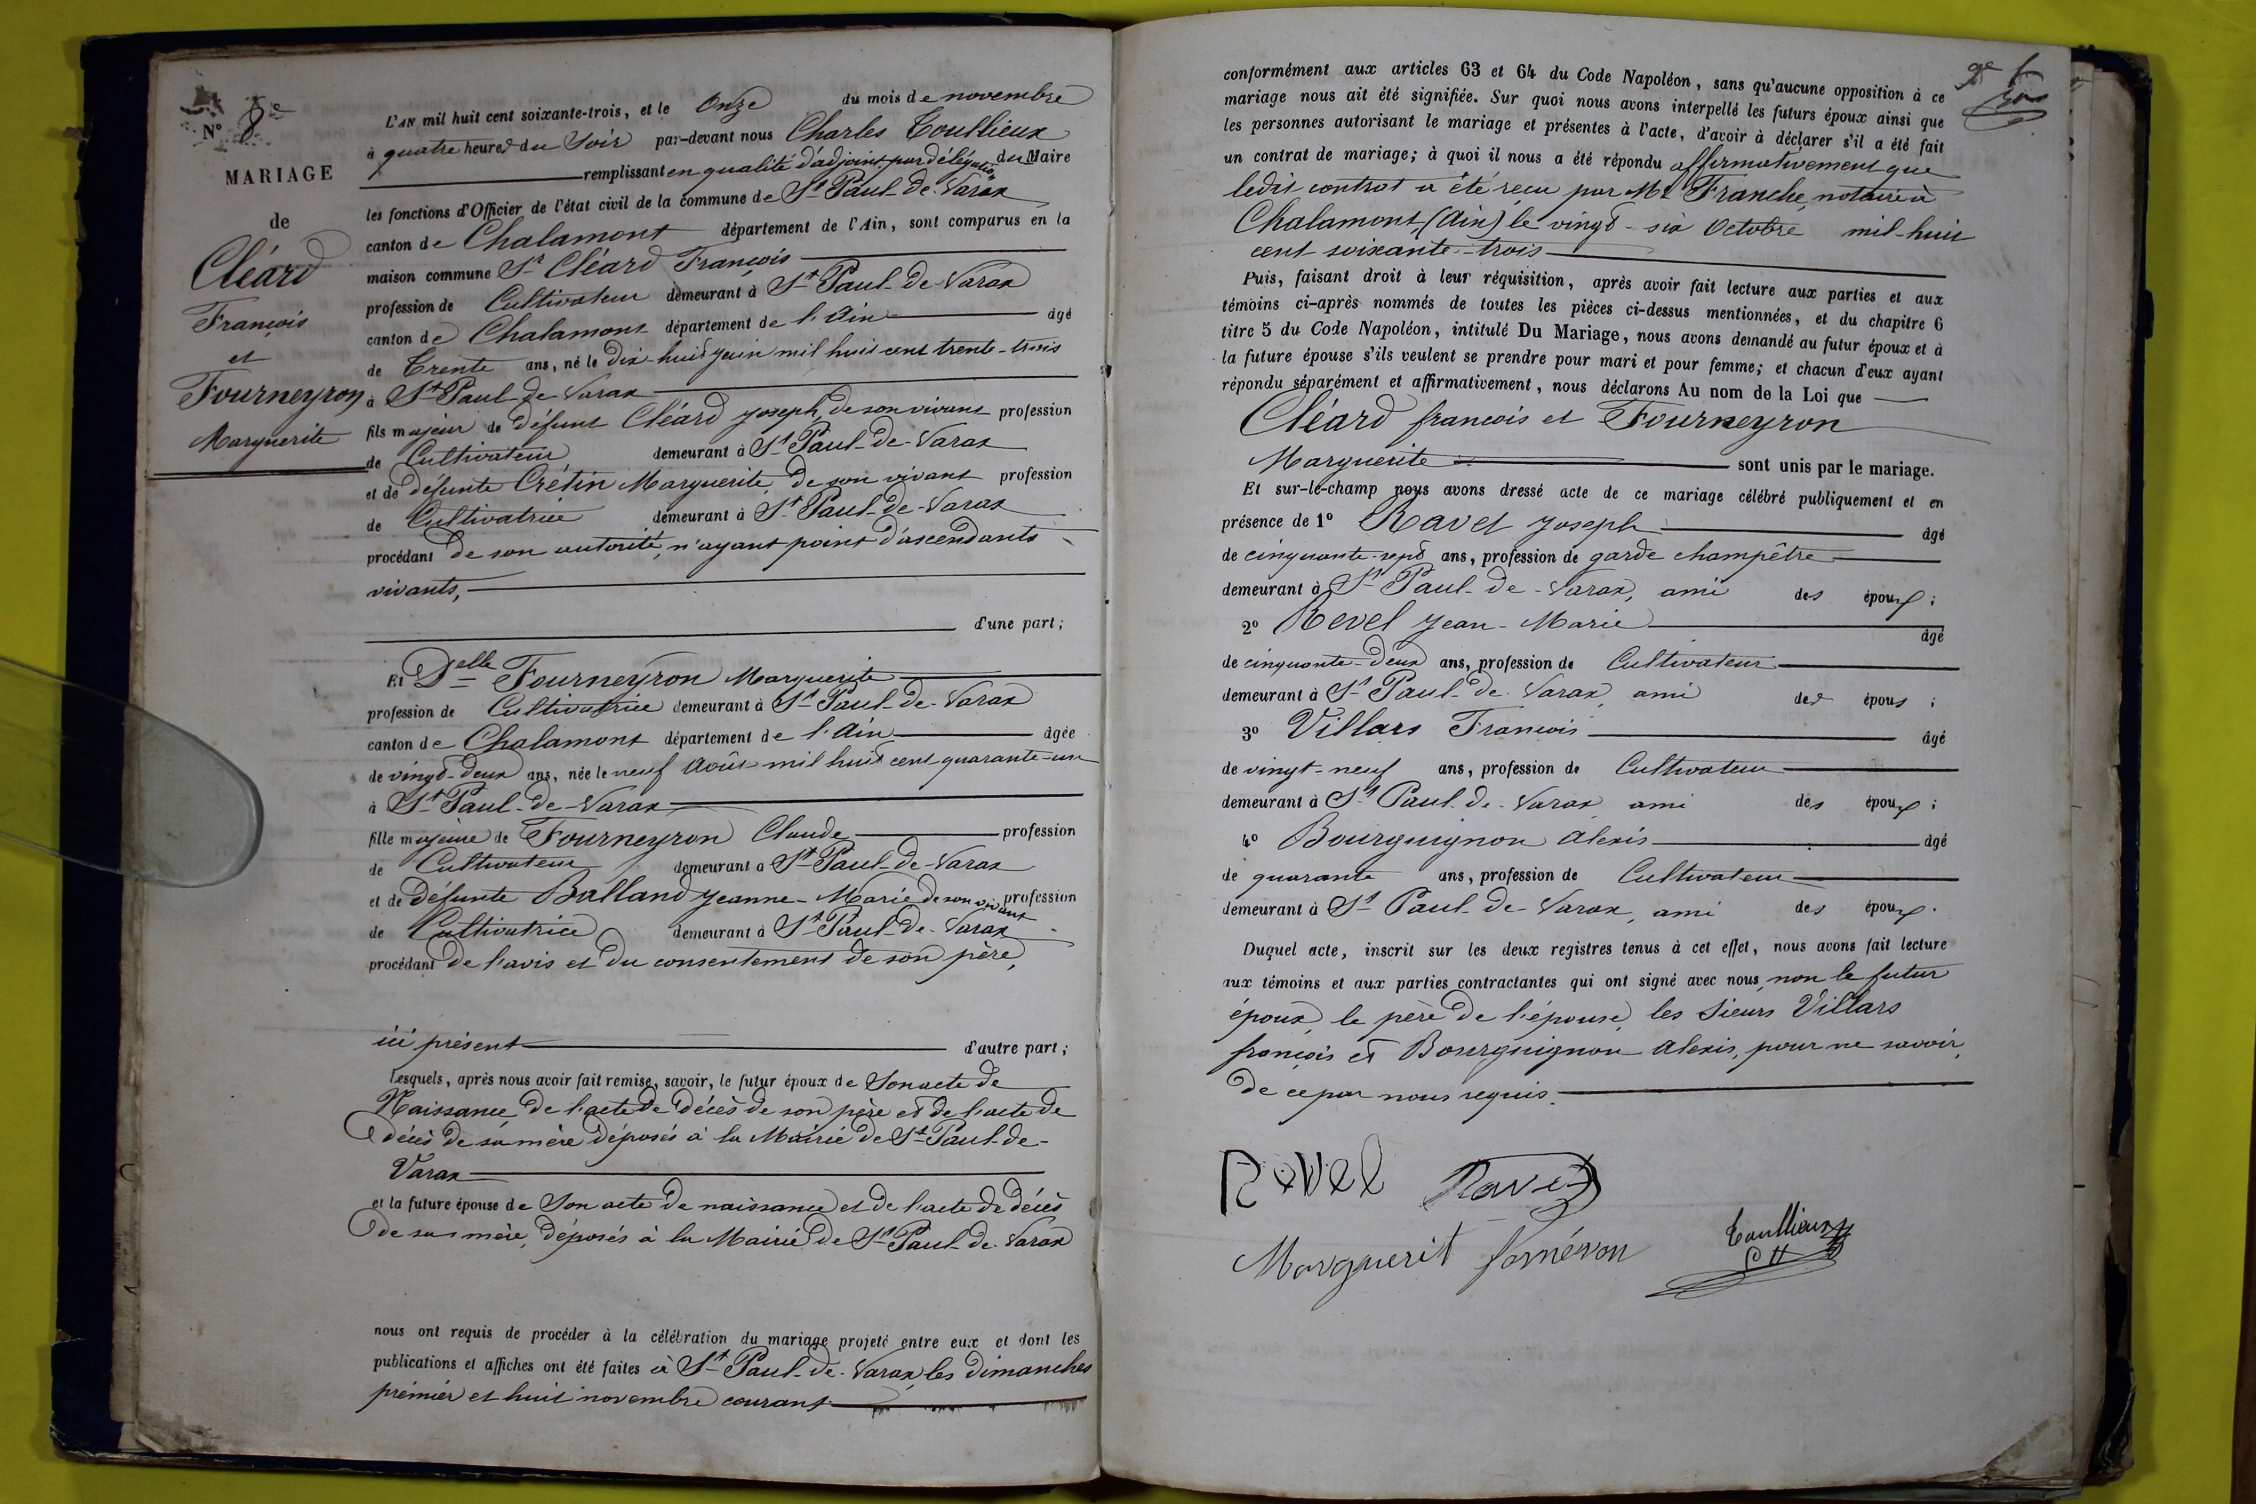 Nº 8e
MARIAGE
de
Cléard
François
et
Fourneyron
Marguerite
L'AN mil huit cent soixante-trois, et le Onze du mois de novembre
à quatre heures du Soir par-devant nous Charles Toullieux
remplissant en qualité d'adjoint par délégation du Maire
les fonctions d'Officier de l'état civil de la commune de St Paul-de-Varax
canton de Chalamont département de l'Ain, sont comparus en la
maison commune Sr Cléard François
profession de Cultivateur demeurant à St Paul-de-Varax
canton de Chalamont département de l'Ain âgé
de Trente ans, né le dix-huit juin mil huit cent trente-trois
à St Paul-de-Varax
fils majeur de défunt Cléard Joseph, de son vivant profession
de Cultivateur demeurant à St Paul-de-Varax
et de défunte Crétin Marguerite, de son vivant profession
de Cultivatrice demeurant à St Paul-de-Varax
procédant de son autorité, n'ayant point d'ascendants
vivants,
d'une part;
Et Delle Fourneyron Marguerite
profession de Cultivatrice demeurant à St Paul-de-Varax
canton de Chalamont département de l'Ain âgée
de vingt-deux ans, née le neuf Août mil huit cent quarante-un
à St Paul-de-Varax
fille majeure de Fourneyron Claude profession
de Cultivateur demeurant à St Paul-de-Varax
et de défunte Balland Jeanne-Marie de son vivant profession
de Cultivatrice demeurant à St Paul-de-Varax
procédant de l'avis et du consentement de son père,
ici présent d'autre part;
Lesquels, après nous avoir fait remise, savoir, le futur époux de Son acte de
Naissance, de l'acte de décès de son père et de l'acte de
décès de sa mère déposés à la Mairie de St Paul-de-
Varax
et la future épouse de Son acte de naissance et de l'acte de décès
de sa mère, déposés à la Mairie de St Paul-de-Varax
nous ont requis de procéder à la célébration du mariage projeté entre eux et dont les
publications et affiches ont été faites à St Paul-de-Varax, les dimanches
prémiér et huit novembre courant
conformément aux articles 63 et 64 du Code Napoléon, sans qu'aucune opposition à ce
mariage nous ait été signifiée. Sur quoi nous avons interpellé les futurs époux ainsi que
les personnes autorisant le mariage et présentes à l'acte, d'avoir à déclarer s'il a été fait
un contrat de mariage; à quoi il nous a été répondu affirmativement que
ledit contrat a été reçu par Me Franche, notaire à
Chalamont, (Ain) le vingt-six Octobre mil-huit
cent soixante-trois
Puis, faisant droit à leur réquisition, après avoir fait lecture aux parties et aux
témoins ci-après nommés de toutes les pièces ci-dessus mentionnées, et du chapitre 6
titre 5 du Code Napoléon, intitulé Du Mariage, nous avons demandé au futur époux et à
la future épouse s'ils veulent se prendre pour mari et pour femme; et chacun d'eux ayant
répondu séparément et affirmativement, nous déclarons Au nom de la Loi que
Cléard françois et Fourneyron
Marguerite sont unis par le mariage.
Et sur-le-champ nous avons dressé acte de ce mariage célébré publiquement et en
présence de 1º Ravet Joseph âgé
de cinquante-sept ans, profession de garde champêtre
demeurant à St Paul-de-Varax, ami des époux;
2º Revel Jean-Marie âgé
de cinquante-deux ans, profession de Cultivateur
demeurant à St Paul-de-Varax, ami des époux;
3º Villars François âgé
de vingt-neuf ans, profession de Cultivateur
demeurant à St Paul-de-Varax, ami des époux;
4º Bourguignon Alexis âgé
de quarante ans, profession de Cultivateur
demeurant à St Paul-de-Varax, ami des époux.
Duquel acte, inscrit sur les deux registres tenus à cet effet, nous avons fait lecture
aux témoins et aux parties contractantes qui ont signé avec nous, non le futur
époux, le père de l'épouse, les Sieurs Villars
françois et Bourguignon Alexis, pour ne savoir,
de ce par nous requis.
Revel Ravet
Marguerit fornéron Toullieux